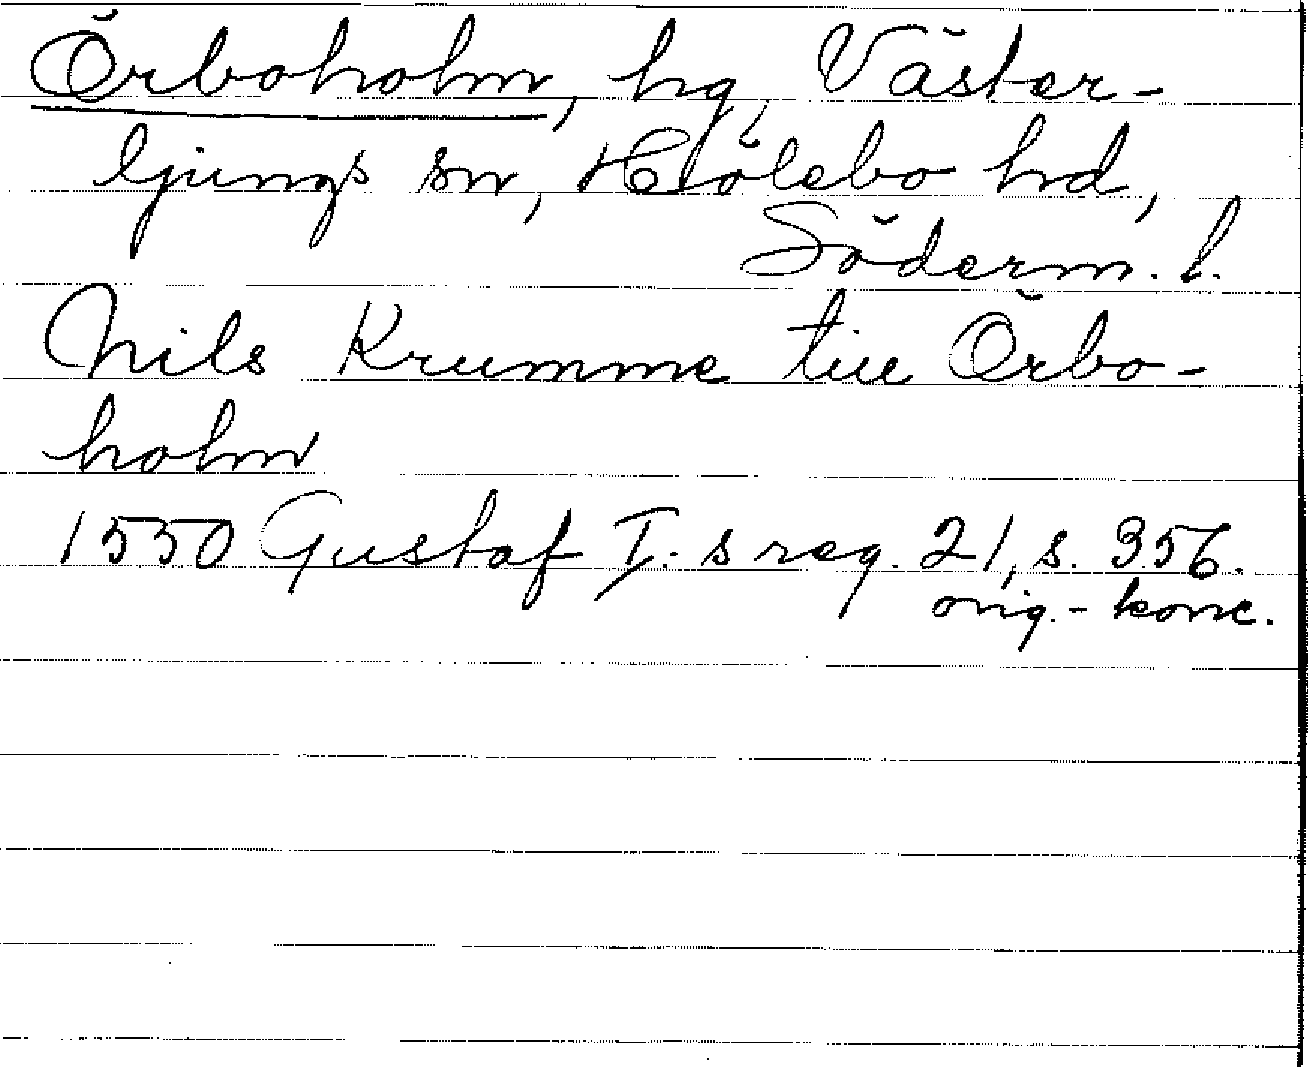 Örboholm, hg, Väster-
ljungs sn, Hölebo hd,
Söderm. l.
Nils Krumme till Örbo-
holm
1550 Gustaf I. s reg. 21, s. 356.
orig.- konc.